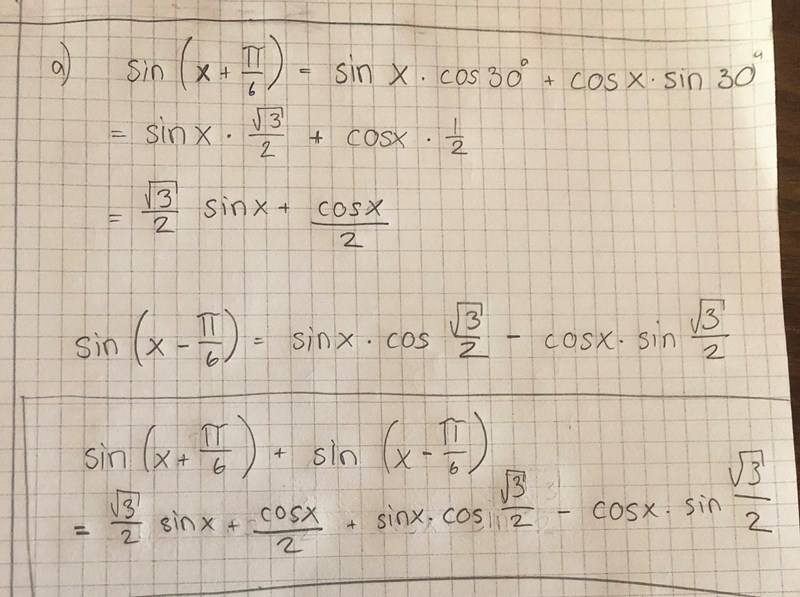 a) sin (x + π/6) = sin x · cos 30° + cos x · sin 30°
= sin x · √3/2 + cos x · 1/2
= √3/2 sin x + cos x/2
sin (x − π/6) = sin x · cos √3/2 − cos x · sin √3/2
sin (x + π/6) + sin (x − π/6)
= √3/2 sin x + cos x/2 + sin x · cos √3/2 − cos x · sin √3/2